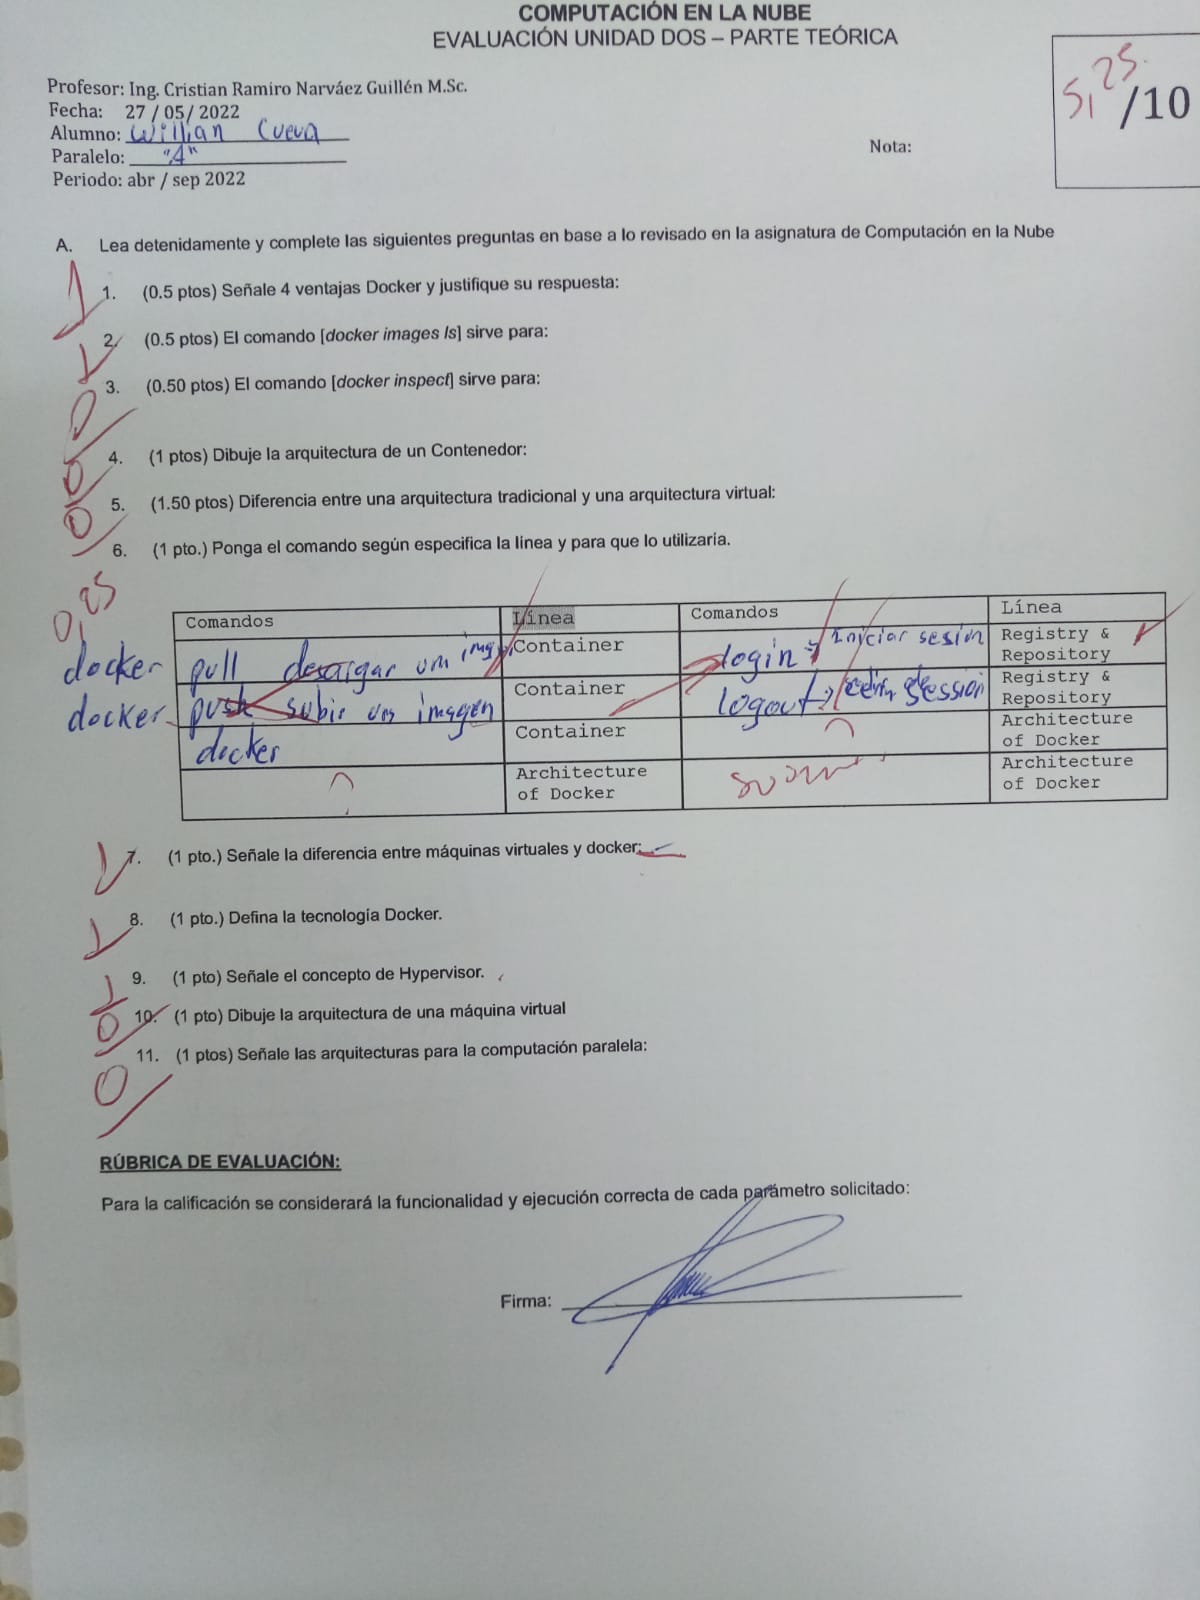 COMPUTACIÓN EN LA NUBE
EVALUACIÓN UNIDAD DOS – PARTE TEÓRICA
5,25 /10
Profesor: Ing. Cristian Ramiro Narváez Guillén M.Sc.
Fecha: 27 / 05/ 2022
Alumno: Willian Cueva
Paralelo: "A"
Nota:
Periodo: abr / sep 2022
A. Lea detenidamente y complete las siguientes preguntas en base a lo revisado en la asignatura de Computación en la Nube
1 1. (0.5 ptos) Señale 4 ventajas Docker y justifique su respuesta:
1 2. (0.5 ptos) El comando [docker images ls] sirve para:
0 3. (0.50 ptos) El comando [docker inspect] sirve para:
0 4. (1 ptos) Dibuje la arquitectura de un Contenedor:
0 5. (1.50 ptos) Diferencia entre una arquitectura tradicional y una arquitectura virtual:
6. (1 pto.) Ponga el comando según especifica la línea y para que lo utilizaría.
0,25
Comandos Línea Comandos Línea
docker pull descargar um img Container login → Iniciar sesión Registry & Repository
docker push subir una imagen Container logout → session Registry & Repository
docker Container Architecture of Docker
Architecture of Docker Architecture of Docker
1 7. (1 pto.) Señale la diferencia entre máquinas virtuales y docker:
1 8. (1 pto.) Defina la tecnología Docker.
1 9. (1 pto) Señale el concepto de Hypervisor.
0 10. (1 pto) Dibuje la arquitectura de una máquina virtual
0 11. (1 ptos) Señale las arquitecturas para la computación paralela:
RÚBRICA DE EVALUACIÓN:
Para la calificación se considerará la funcionalidad y ejecución correcta de cada parámetro solicitado:
Firma: